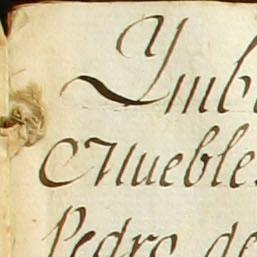 Ymb
Muebles
Pedro de